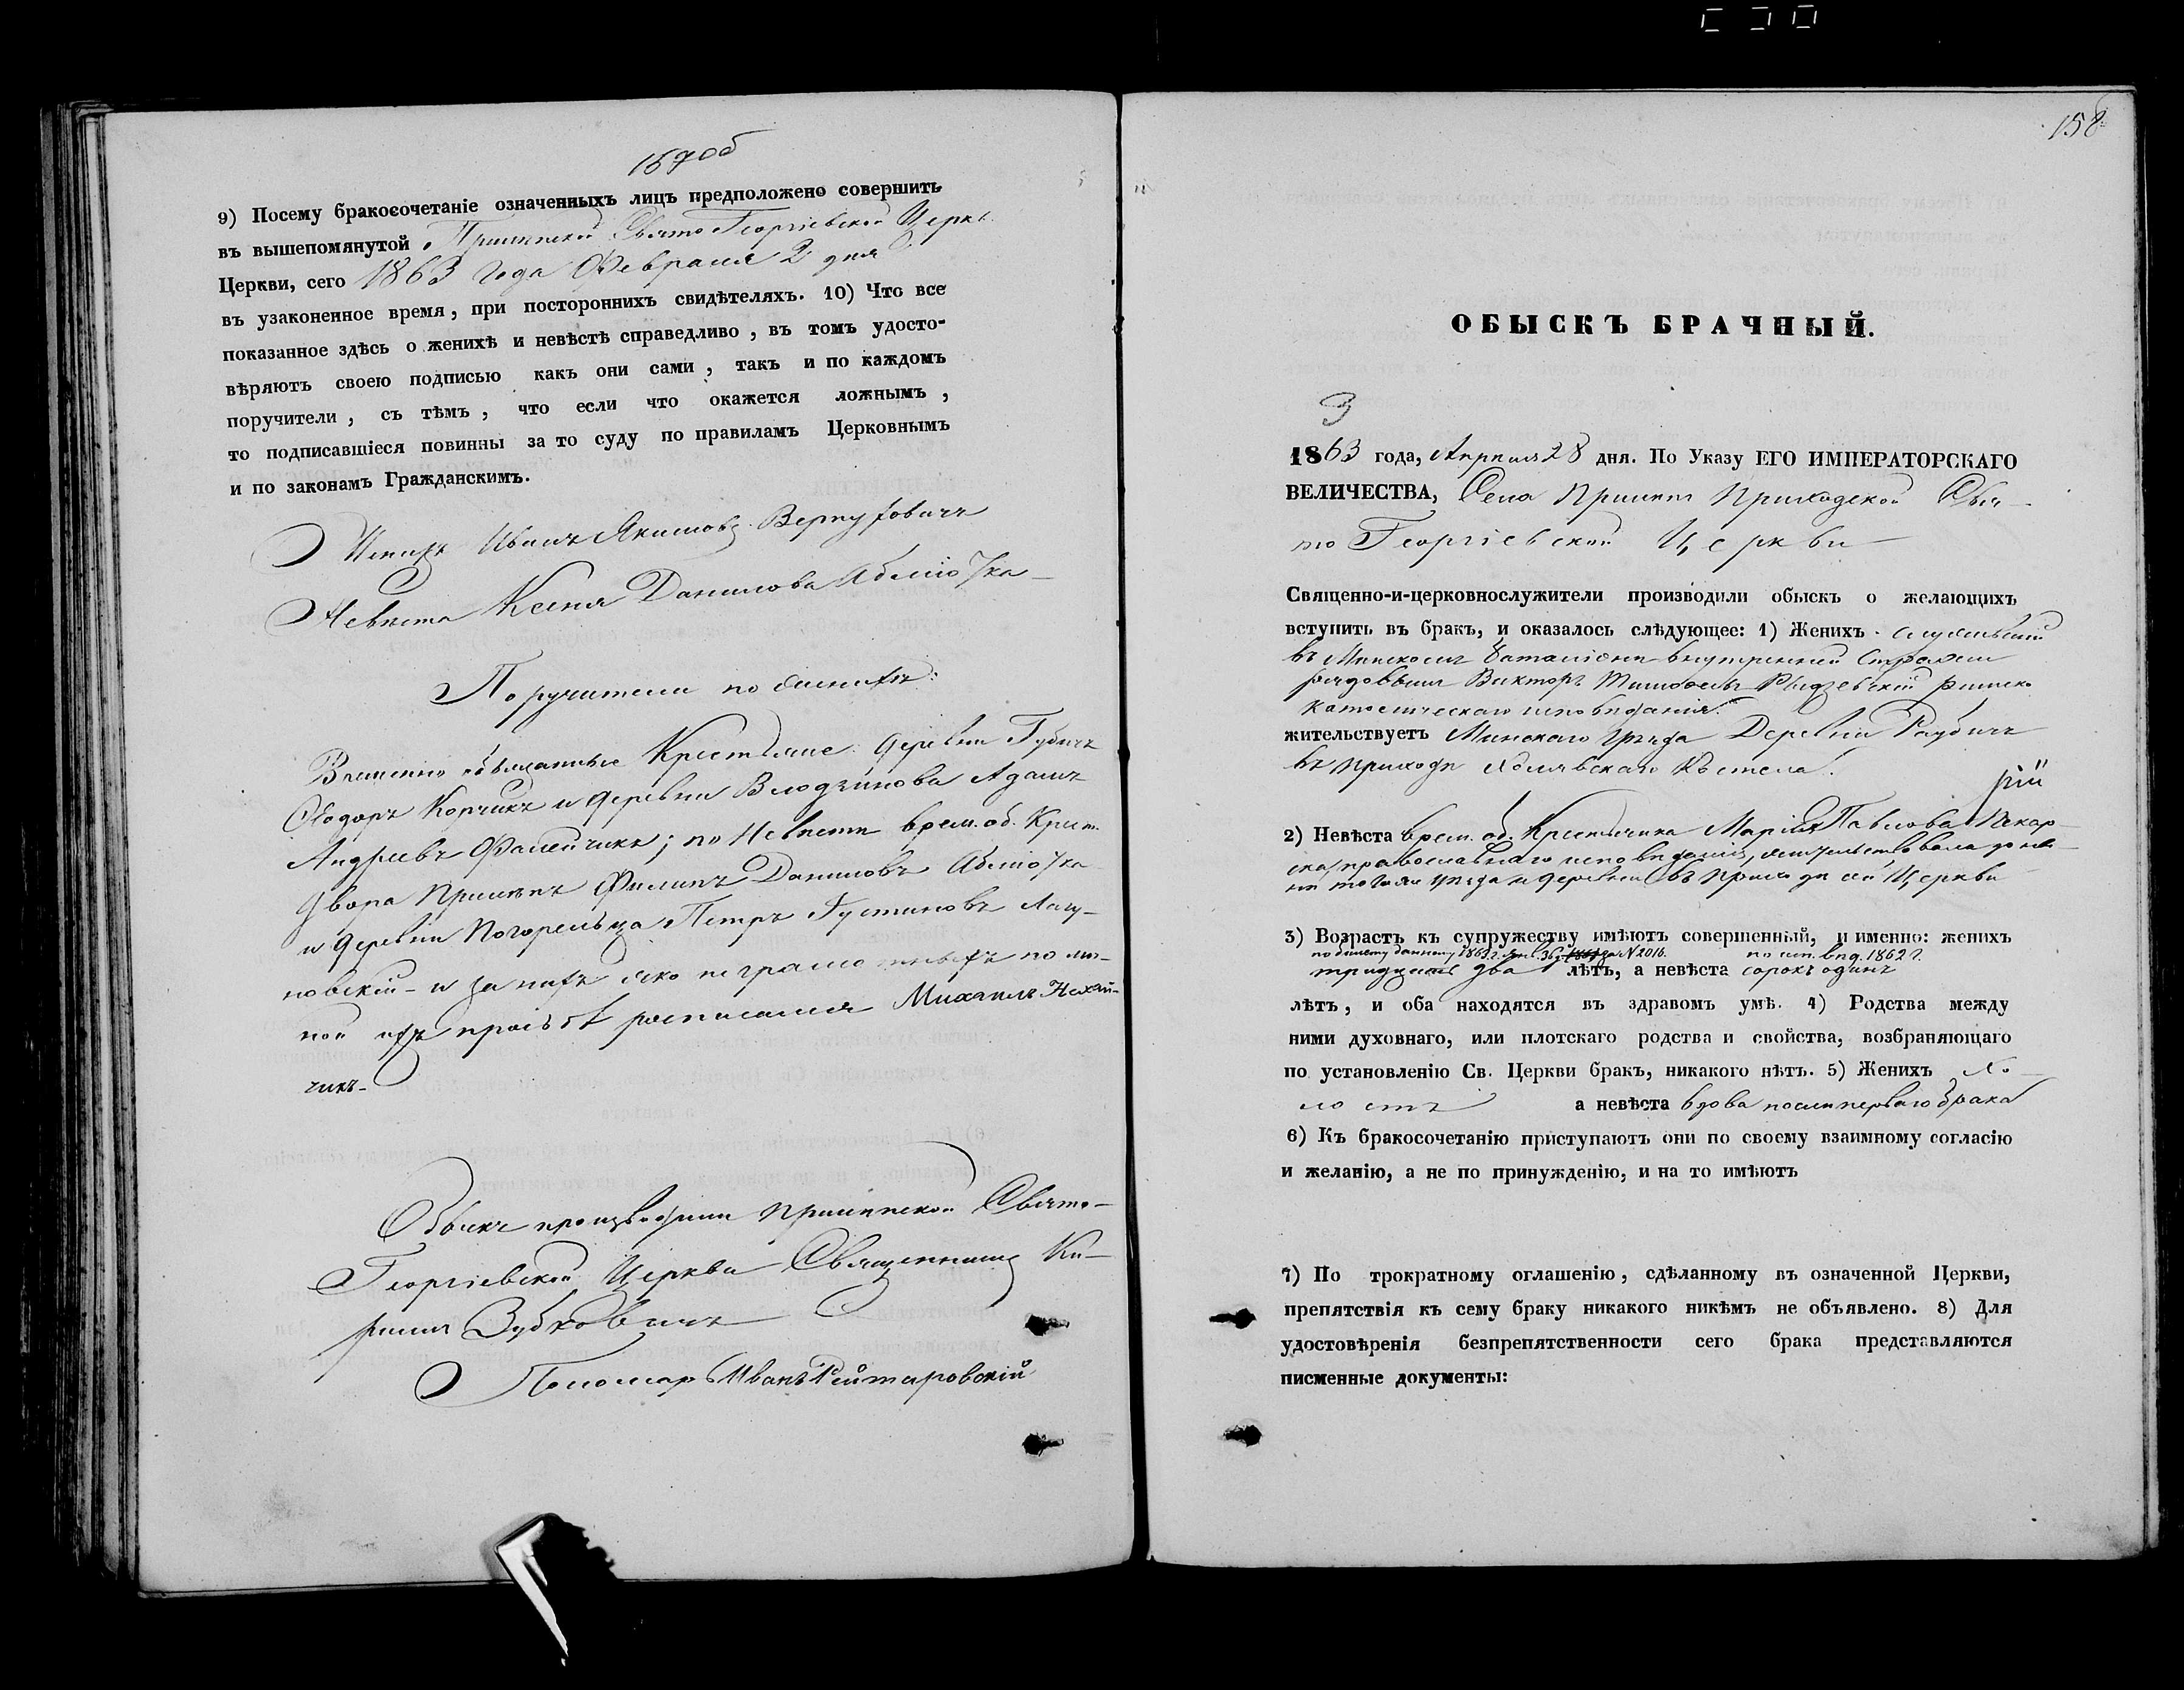 157об
9) Посему бракосочетаніе означенныхъ лицъ предположено совершить
въ вышепомянутой Прилѣпской Свято Георгіевской Церкв
Церкви, сего 1863 года Февраля 2 дня
въ узаконенное время, при постороннихъ свидѣтеляхъ. 10) Что все
показанное здѣсь о женихѣ и невѣстѣ справедливо, въ томъ удосто-
вѣряютъ своею подписью какъ они сами, такъ и по каждомъ
поручители, съ тѣмъ, что если что окажется ложнымъ,
то подписавшіеся повинны за то суду по правиламъ Церковнымъ
и по законамъ Гражданскимъ.
Женихъ Иванъ Якимовъ
Невѣста Ксенія Данилова
Поручители по женихѣ:
Временно обязанные Крестьяне деревни Губичъ
Ѳедоръ Корчикъ и деревни Адамъ
Андреевъ ; по Невѣстѣ врем. об. Крест.
двора Прилѣпъ Филипъ Даниловъ
и деревни Погорельца Петръ Лагу-
новскій - и за нихъ яко неграмотныхъ по лич-
ной ихъ прозьбѣ росписался Михаилъ Нехай-
чикъ -
Обыскъ производили Прилѣпской Свято-
Георгіевской Церкви Священникъ Ки-
рилъ Зубковичъ
Пономарь Иванъ
158
ОБЫСКЪ БРАЧНЫЙ.
3
1863 года, Апрѣля 28 дня. По Указу ЕГО ИМПЕРАТОРСКАГО
ВЕЛИЧЕСТВА, Села Прилѣпъ Приходской Свя-
то Георгіевской Церкви
Священно-и-церковнослужители производили обыскъ о желающихъ
вступить въ бракъ, и оказалось слѣдующее: 1) Женихъ служившій
въ Минскомъ баталіонѣ внутренней стражи
рядовымъ Викторъ Римско
Католическаго исповѣданія.
жительствуетъ Минскаго уѣзда Деревни Раубичъ
въ приходѣ Костела.
рій
2) Невѣста врем. об. Крестьянка Марія Павлова Пекар-
ска, православнаго исповѣданія, жительствовала до ны-
нѣ того же уѣзда и деревни въ приходѣ сей Церкви
3) Возрастъ къ супружеству имѣютъ совершенный, и именно: женихъ
по билету данному 1862 г. за N 2016. по исп. вѣд. 1862 г.
тридцать два лѣтъ, а невѣста сорокъ одинъ
лѣтъ, и оба находятся въ здравомъ умѣ. 4) Родства между
ними духовнаго, или плотскаго родства и свойства, возбраняющаго
по установленію Св. Церкви бракъ, никакого нѣтъ. 5) Женихъ хо-
лостъ а невѣста вдова послѣ перваго брака
6) Къ бракосочетанію приступаютъ они по своему взаимному согласію
и желанію, а не по принужденію, и на то имѣютъ
7) По трократному оглашенію, сдѣланному въ означенной Церкви,
препятствія къ сему браку никакого никѣмъ не объявлено. 8) Для
удостовѣренія безпрепятственности сего брака представляются
писменные документы: